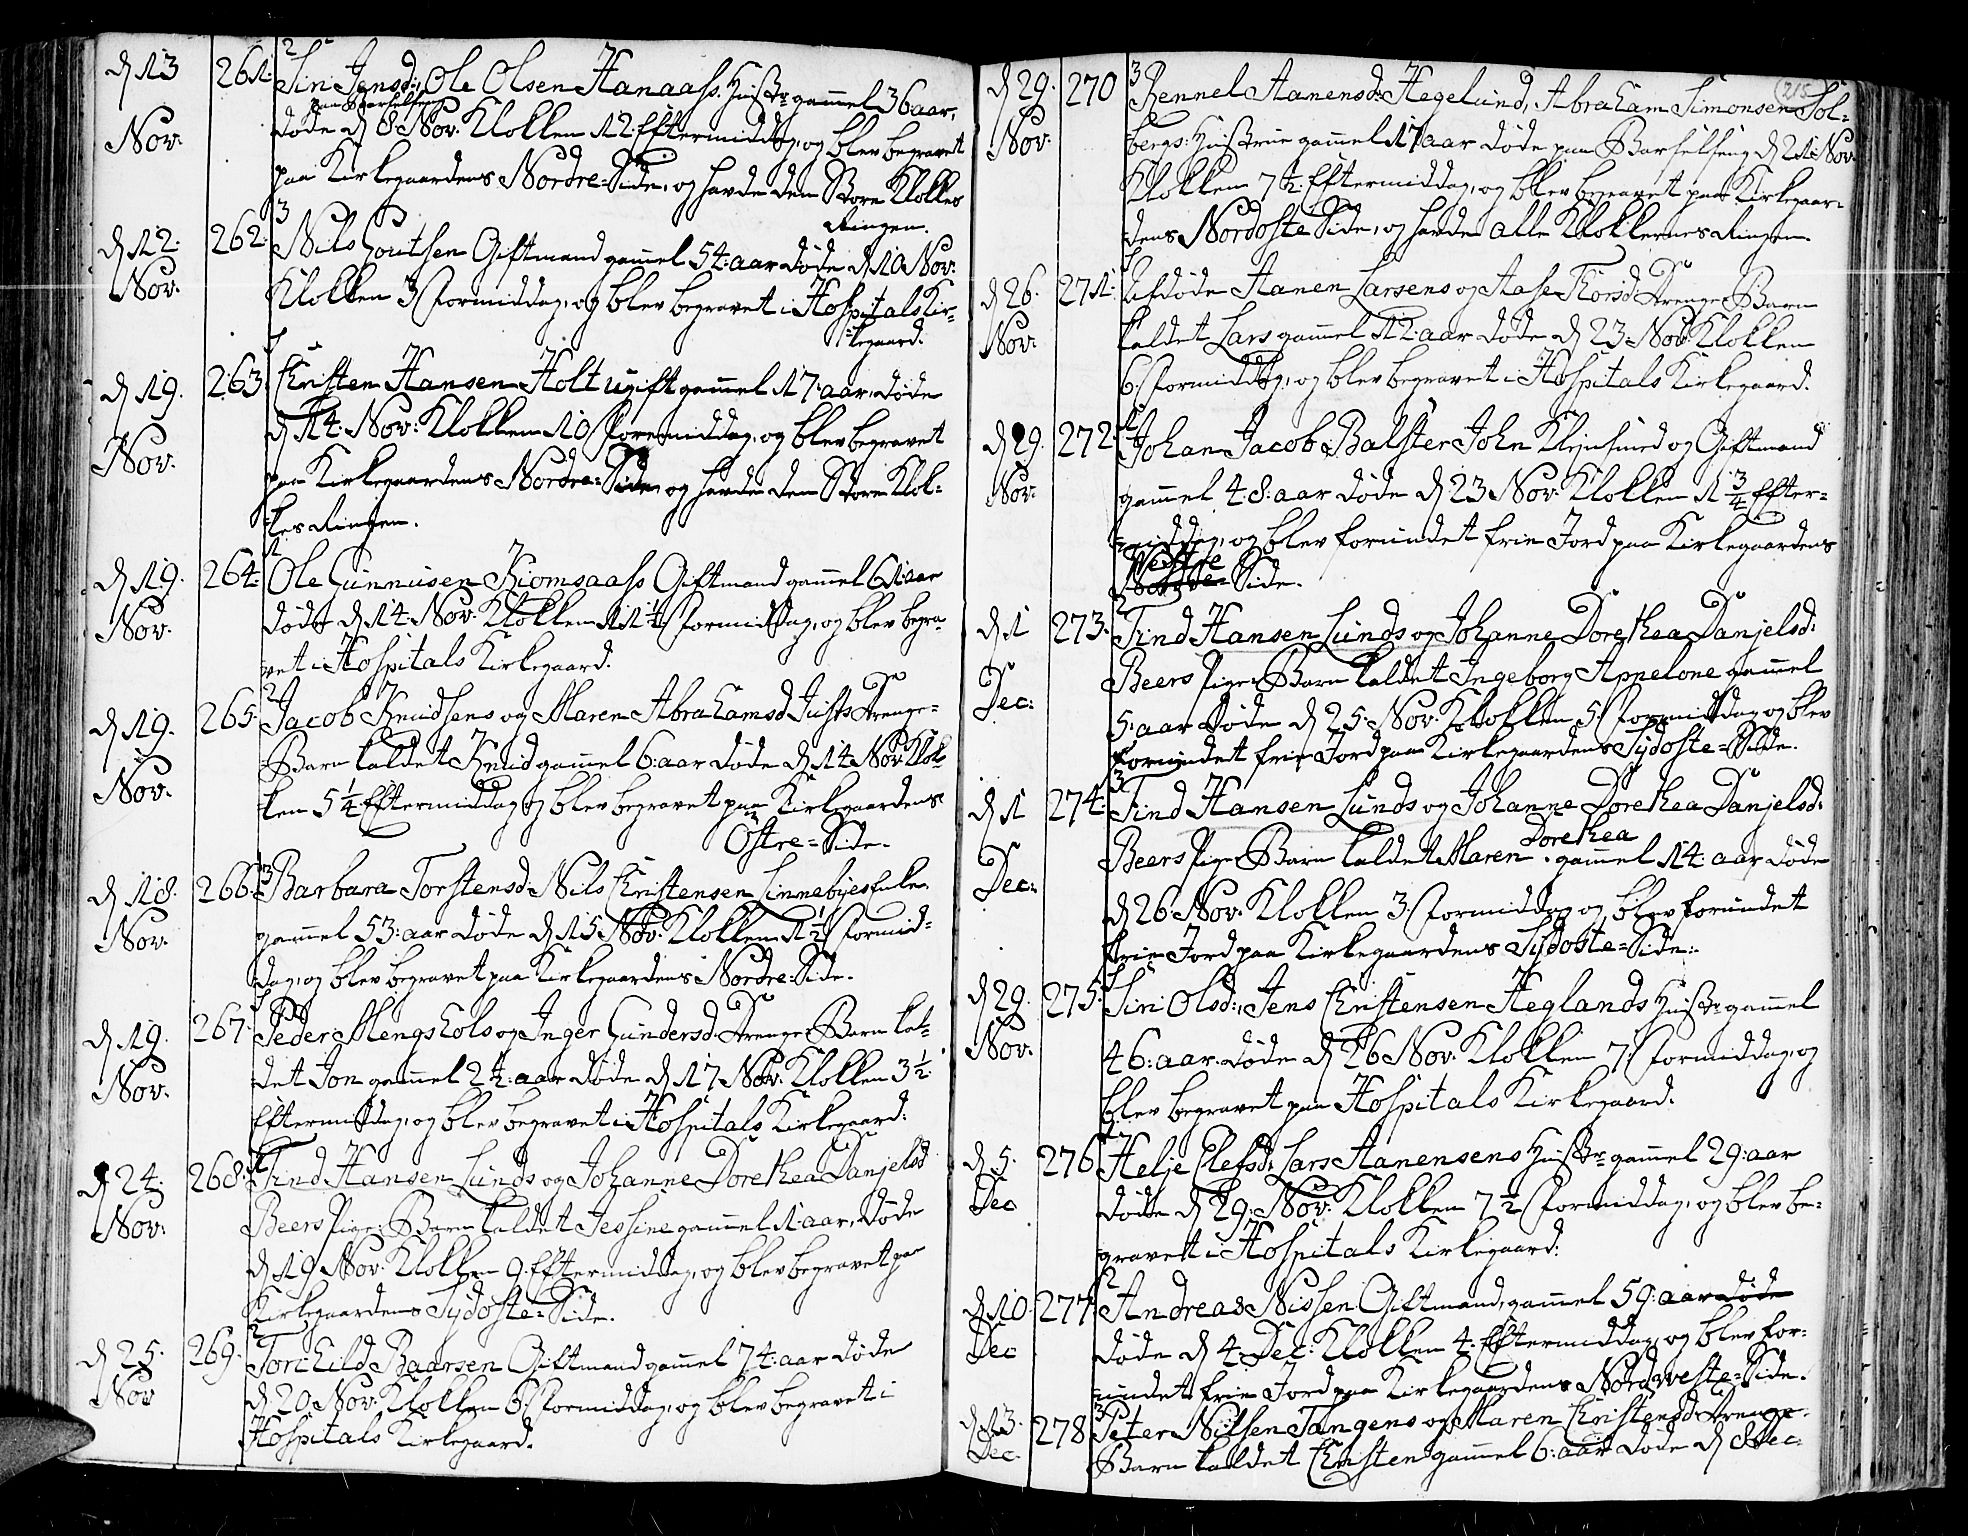 d 13 Nov: 261. 2 Siri Jensd:, Ole Olsen Hanaass Hustr: gamel 36 aar,
paa Barselseng
døde d 8 Nov: Klokken 12 Eftermiddag, og blev begravet
paa Kirkegaardens Nordre-Side, og havde den Store Klokkes
Ringen.
d 12. Nov. 262. 3 Nils Goutsen Giftmand gamel 54: aar døde d 10 Nov:
Klokken 3 Formiddag, og blev begravet i Hospitals Kir-
kegaard.
d 19. Nov. 263. Christen Hansen Holt ugift gamel 17: aar, døde
d 14: Nov: Klokken 10 Formiddag, og blev begravet
paa Kirkegaardens Nordre-Side, og havde den Store Klok-
kes Ringen.
d 19. Nov. 264. 1 Ole Gunnusen Giftmand gamel 61 aar
døde d 14. Nov. Klokken 11 Formiddag, og blev begra-
vet i Hospitals Kirkegaard.
d 19. Nov. 265. 2 Jacob Knudsens og Maren Abrahamsd Justs Drenge-
Barn kaldet Knud gamel 6: aar døde d 14 Nov: Klok-
ken 5 1/4 Eftermiddag og blev begravet paa Kirkegaardens
Østre-Side.
d 18. Nov. 266. 3 Barbara Torstensd: Nils Christensen Linnebyes Enke,
gamel 53: aar døde d 15 Nov: Klokken 1 1/2 Formid-
dag, og blev begravet paa Kirkegaardens Nordre-Side.
d 19. Nov. 267. Peder Mengshols og Inger Gundersd Drenge-Barn kal-
det Jon gamel 2 1/2: aar døde d 17 Nov: Klokken 3 1/2
Eftermiddag, og blev begravet i Hospitals Kirkegaard:
d 24. Nov: 268. 1 Find Hansen Lunds og Johanne Dorethea Danjelsd
Beers Pige-Barn kaldet Jessine gamel 1 aar, døde
d 19 Nov: Klokken 9 Eftermiddag, og blev begravet paa
Kirkegaardens Sydoste-Side.
d 25. Nov 269. 2 Torchild Baarsen Giftmand gamel 74: aar døde
d 20 Nov: Klokken 6 Formiddag, og blev begravet i
Hospitals Kirkegaard.
215
d 29. Nov. 270 3 Rennel Aanensd: Hegelund, Abraham Simonsen Sol-
bergs: Hustrue gamel 17 aar døde paa Barselseng d 21 Nov
Klokken 7 1/2 Eftermiddag, og blev begravet paa Kirkegaar-
dens Nordoste Side, og havde alle Klokkernes Ringen.
d 26. Nov: 271. Afdøde Aanen Larsens og Aase Thorsd Drenge-Barn
kaldet Lars gamel 12: aar døde d 23 Nov Klokken
6 Formiddag, og blev begravet i Hospitals Kirkegaard.
d 29. Nov: 272. 1 Johan Jacob Balster John Klejnsmed og Giftmand
gamel 48: aar døde d 23 Nov: Klokken 1 3/4 Efter-
middag, og blev forundet frie Jord paa Kirkegaardens
Vestre
Nordre-Side.
d 1 Dec: 273. 2 Find Hansen Lunds og Johanne Dorethea Danjelsd:
Beers Pige-Barn kaldet Ingeborg Appelone gamel
5: aar døde d 25: Nov. Klokken 5 Formiddag og blev
forundet frie Jord paa Kirkegaardens Sydoste-Side.
d 1 Dec: 274. 3 Find Hansen Lunds og Johanne Dorethea Danjelsd:
Dorethea
Beers Pige-Barn kaldet Maren gamel 14: aar døde
d 26 Nov. Klokken 3 Formiddag og blev forundet
frie Jord paa Kirkegaardens Sydoste-Side:
d 29. Nov. 275. Siri Olsd:, Jens Christensen Heglands Hustr: gamel
46: aar døde d 26 Nov: Klokken 7: Formiddag, og
blev begravet paa Hospitals Kirkegaard.
d 5. Dec 276 1 Helje Elefsd: Lars Aanensens Hustr: gamel 29: aar
døde d 29: Nov: Klokken 7 1/2 Formiddag, og blev be-
gravet i Hospitals Kirkegaard:
d 10. Dec 277. 2 Andreas Nissen Giftmand, gamel 59: aar døde
døde d 4 Dec: Klokken 4: Eftermiddag, og blev for-
undet frie Jord paa Kirkegaardens Nordveste-Side.
d 13. Dec. 278 3 Peter Nilsen Tangens og Maren Christensd: Drenge-
Barn kaldet Christen gamel 6: aar døde d 8 Dec: